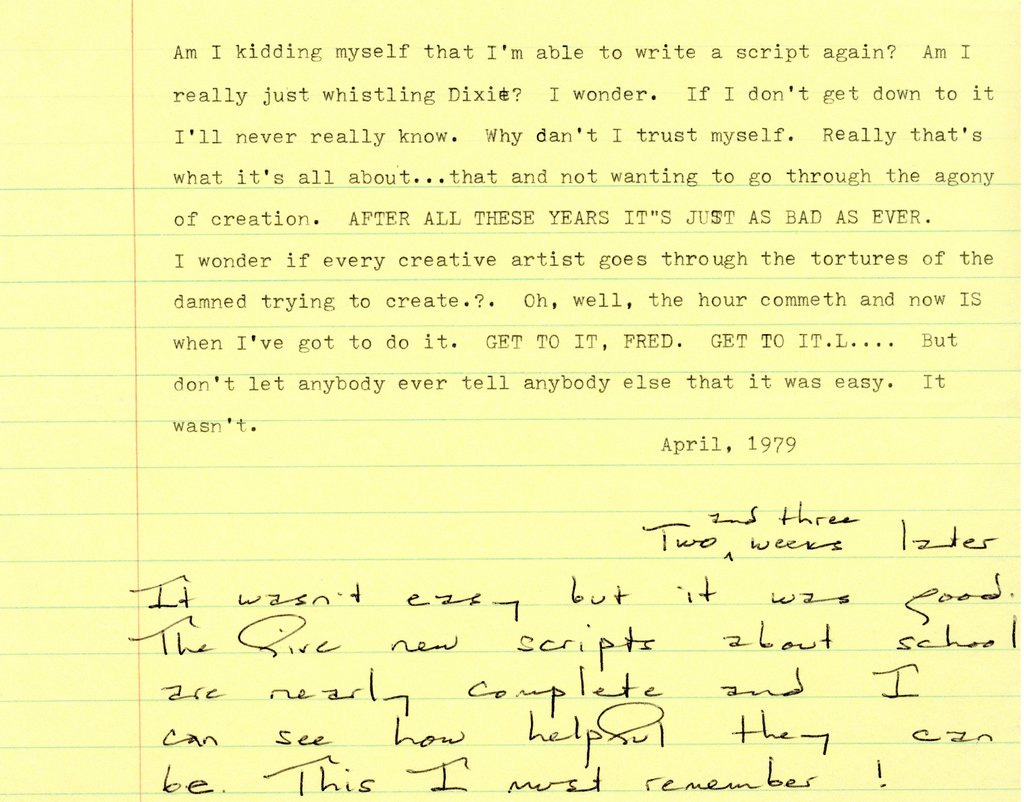 Am I kidding myself that I'm able to write a script again?  Am I
really just whistling Dixie?  I wonder.  If I don't get down to it
I'll never really know.  Why dan't I trust myself.  Really that's
what it's all about...that and not wanting to go through the agony
of creation.  AFTER ALL THESE YEARS IT"S JUST AS BAD AS EVER.
I wonder if every creative artist goes through the tortures of the
damned trying to create.?.  Oh, well, the hour commeth and now IS
when I've got to do it.  GET TO IT, FRED.  GET TO IT.L....  But
don't let anybody ever tell anybody else that it was easy.  It
wasn't.
April, 1979
and three
Two ^ weeks later
It wasn't easy but it was good.
The five new scripts about school
are nearly complete and I
can see how helpful they can
be. This I must remember !